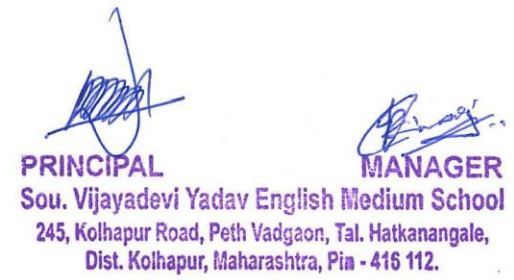 PRINCIPAL MANAGER
Sou. Vijayadevi Yadav English Medium School
245, Kolhapur Road, Peth Vadgaon, Tal. Hatkanangale,
Dist. Kolhapur, Maharashtra, Pin - 416 112.